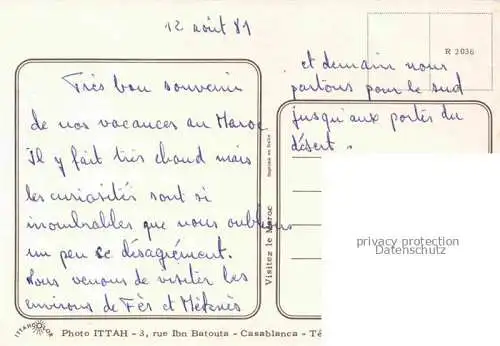 12 août 81
Très bon souvenir
de nos vacances au Maroc
Il y fait très chaud mais
les curiosités sont si
innombrables que nous oublions
un peu ce désagrément.
Nous venons de visiter les
environs de Fès et Meknès
et demain nous
partons pour le sud
jusqu'aux portes du
désert.
R 2036
Visitez le Maroc
privacy protection
Datenschutz
ITTAHCOLOR
Photo ITTAH - 3, rue Ibn Batouta - Casablanca - Té